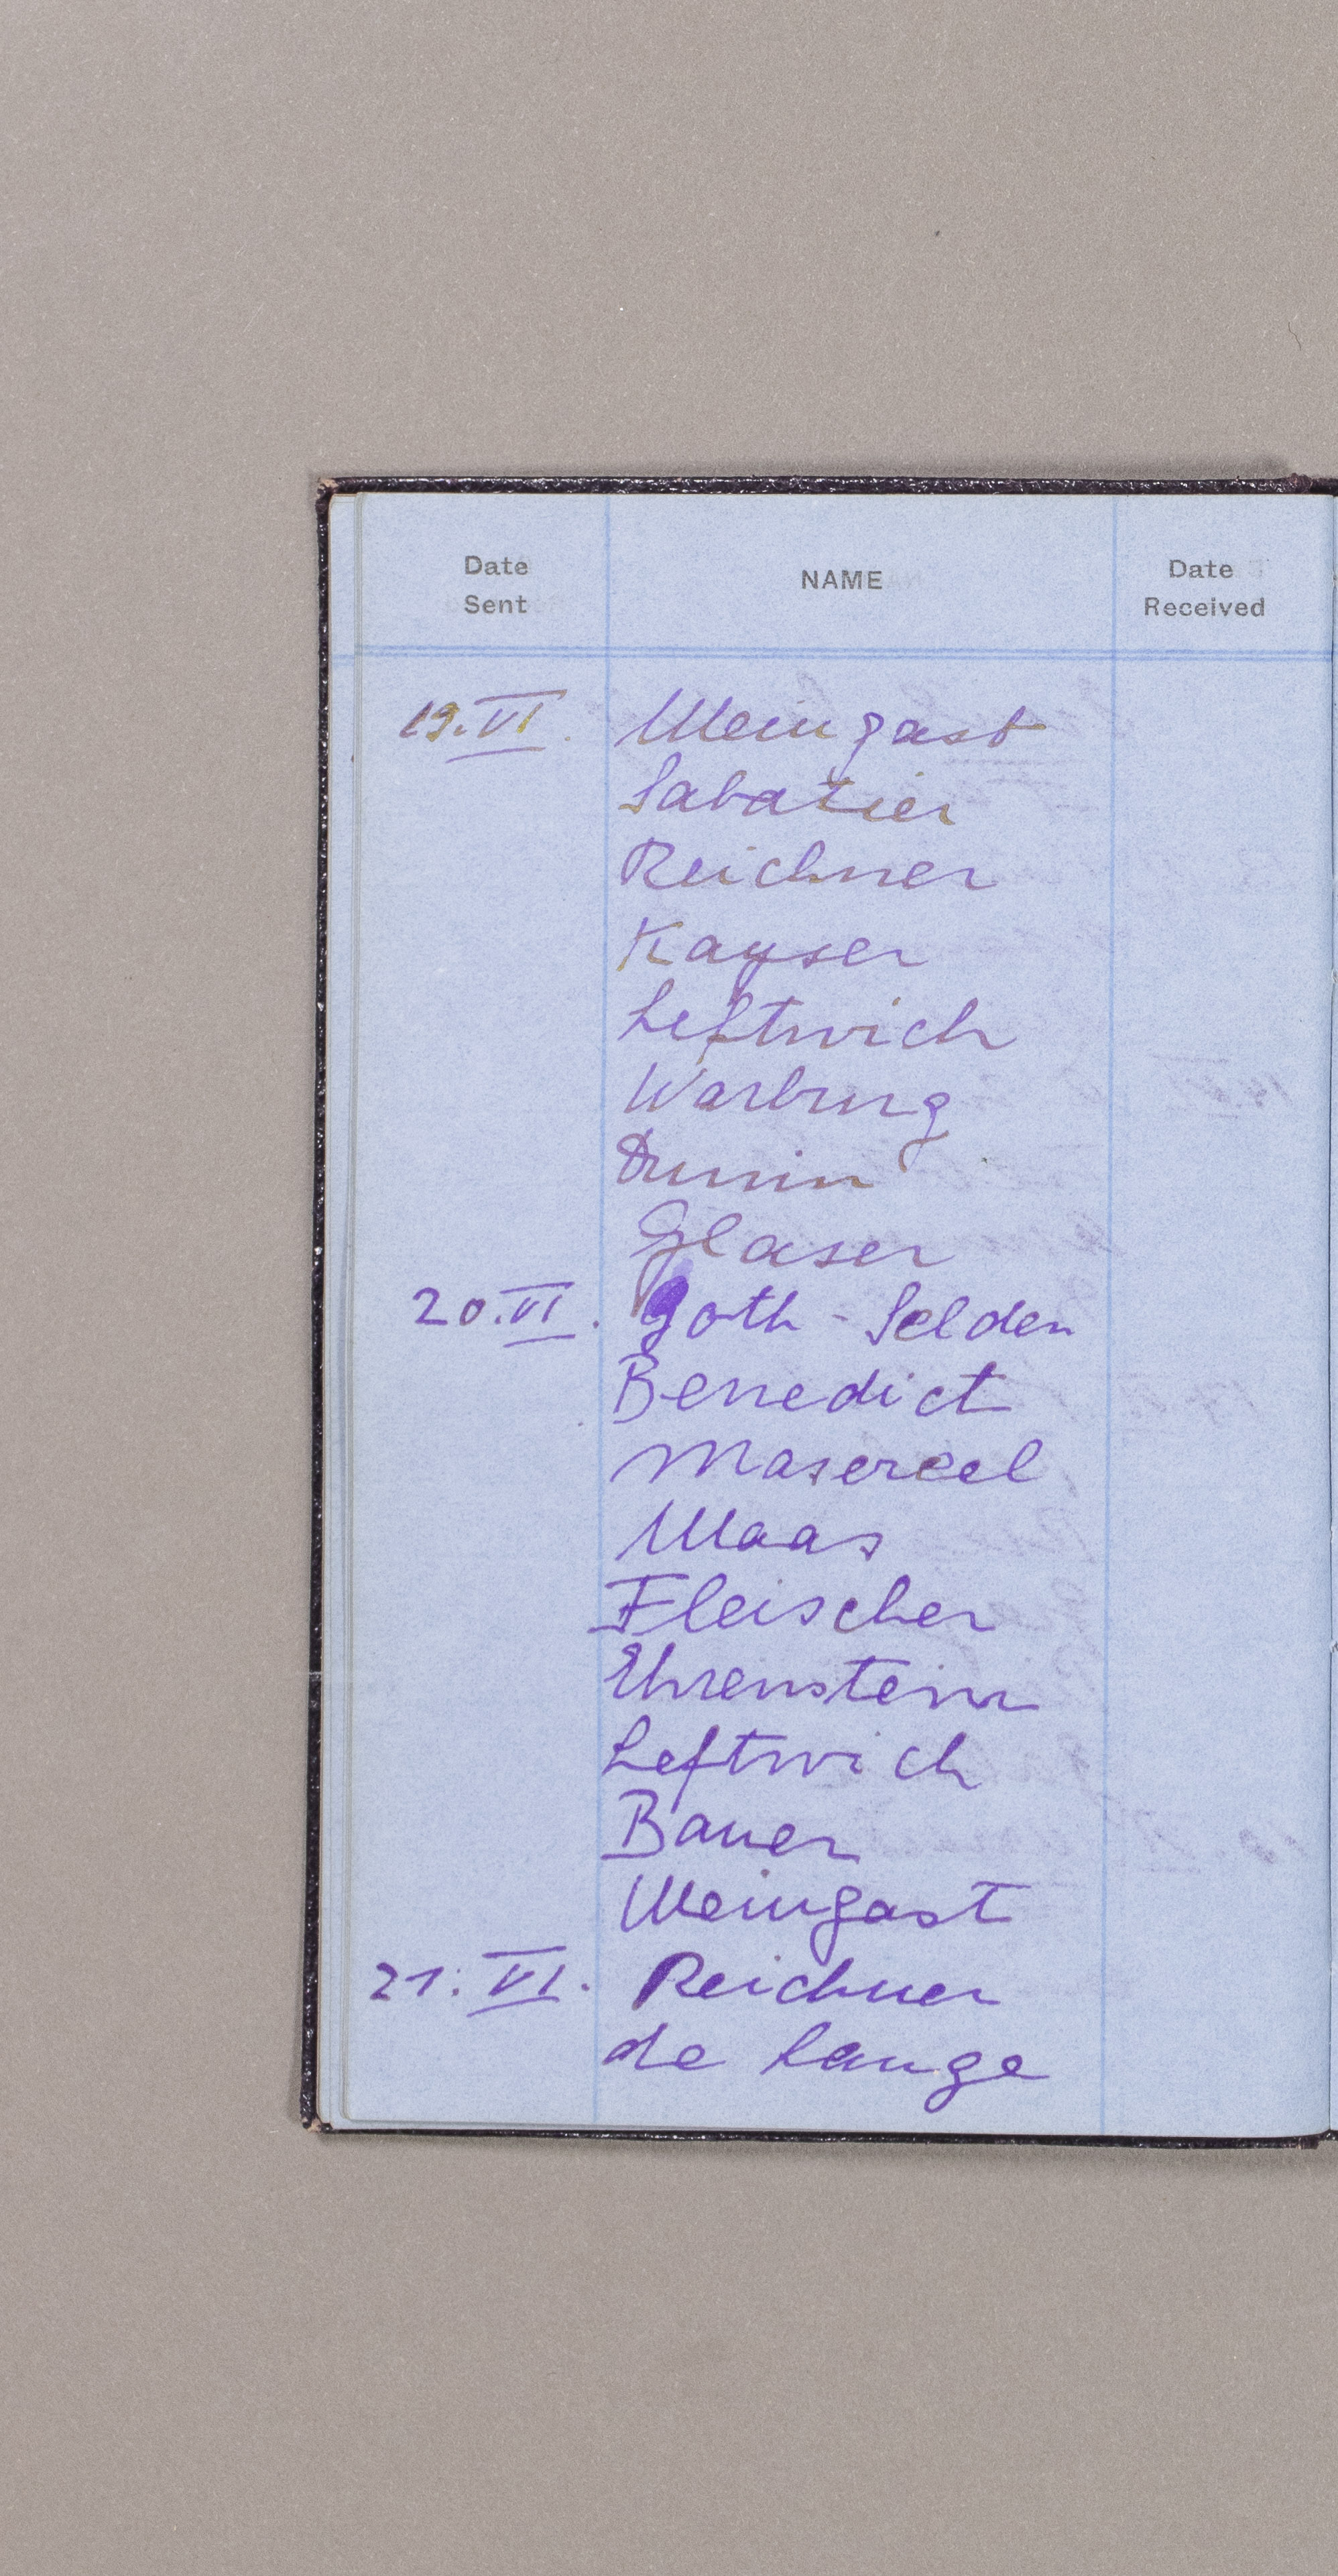 Date Sent NAME Date Received
19.VI. Weingast
Sabatier
Reichner
Kayser
Leftwich
Warburg
Dunin
Glaser
20.VI. Goth-Selden
Benedict
Masereel
Maas
Fleischer
Ehrenstein
Leftwich
Bauer
Weingast
21.VI. Reichner
de Lange